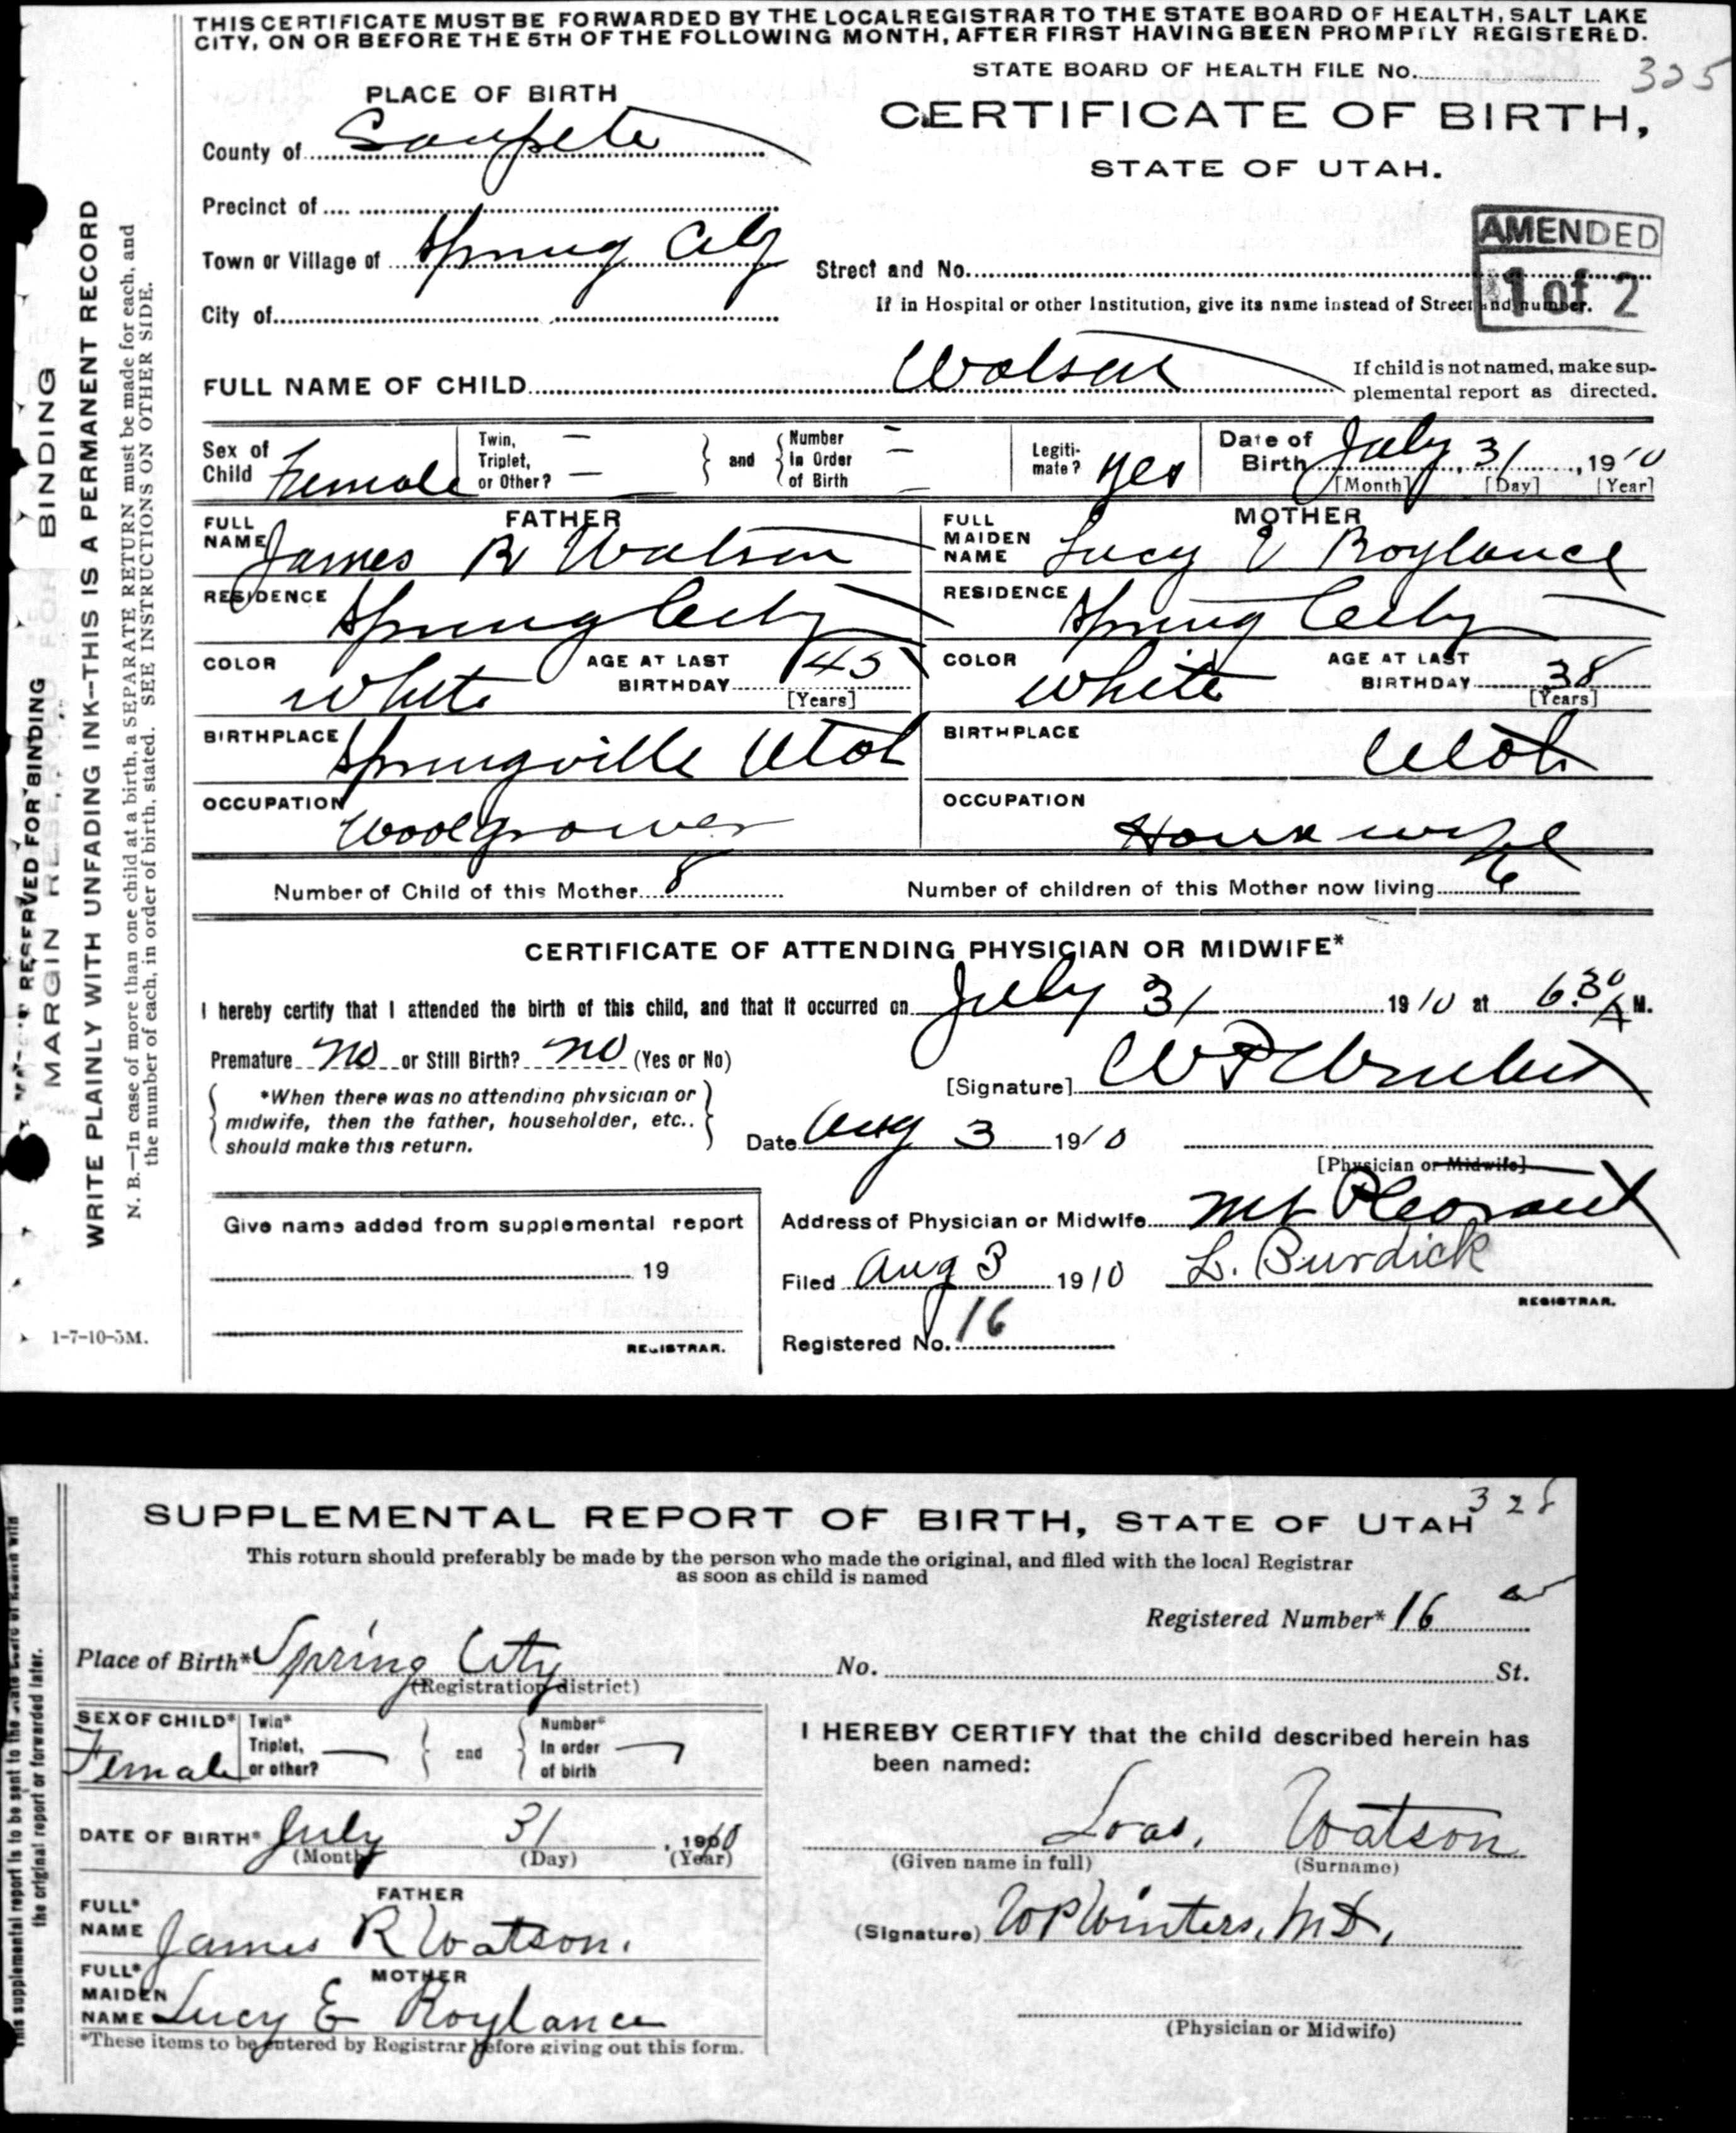 THIS CERTIFICATE MUST BE FORWARDED BY THE LOCAL REGISTRAR TO THE STATE BOARD OF HEALTH, SALT LAKE
CITY, ON OR BEFORE THE 5TH OF THE FOLLOWING MONTH, AFTER FIRST HAVING BEEN PROMPTLY REGISTERED.
STATE BOARD OF HEALTH FILE No. 325
PLACE OF BIRTH
CERTIFICATE OF BIRTH,
STATE OF UTAH.
County of Sanpete
Precinct of
Town or Village of Spring City
Street and No.
AMENDED
1 of 2
If in Hospital or other Institution, give its name instead of Street and number.
City of
FULL NAME OF CHILD Watson
If child is not named, make sup-
plemental report as directed.
Sex of Child Female
Twin, Triplet, or Other? —
and
Number In Order of Birth —
Legiti-mate? yes
Date of Birth July 31, 1910
[Month] [Day] [Year]
FATHER
FULL NAME James R Watson
RESIDENCE Spring City
COLOR White
AGE AT LAST BIRTHDAY 45
[Years]
BIRTHPLACE Springville Utah
OCCUPATION Woolgrower
MOTHER
FULL MAIDEN NAME Lucy E Roylance
RESIDENCE Spring City
COLOR White
AGE AT LAST BIRTHDAY 38
[Years]
BIRTHPLACE Utah
OCCUPATION Housewife
Number of Child of this Mother 8
Number of children of this Mother now living 6
CERTIFICATE OF ATTENDING PHYSICIAN OR MIDWIFE*
I hereby certify that I attended the birth of this child, and that it occurred on July 31 1910 at 6.30 A M.
Premature no or Still Birth? no (Yes or No)
[Signature] W P
*When there was no attending physician or
midwife, then the father, householder, etc..
should make this return.
Date Aug 3 1910
[Physician or Midwife]
Address of Physician or Midwife Mt Pleasant
Give name added from supplemental report
19
REGISTRAR.
Filed Aug 3 1910 L. Burdick
REGISTRAR.
Registered No. 16
RESERVED FOR BINDING
MARGIN RESERVED FOR BINDING
WRITE PLAINLY WITH UNFADING INK--THIS IS A PERMANENT RECORD
N. B.—In case of more than one child at a birth, a SEPARATE RETURN must be made for each, and
the number of each, in order of birth, stated. SEE INSTRUCTIONS ON OTHER SIDE.
1-7-10-5M.
SUPPLEMENTAL REPORT OF BIRTH, STATE OF UTAH
This return should preferably be made by the person who made the original, and filed with the local Registrar
as soon as child is named
Registered Number* 16
Place of Birth* Spring City No. St.
(Registration district)
SEX OF CHILD* Female
Twin* Triplet, or other? —
and
Number* In order of birth —
DATE OF BIRTH* July 31, 1910
(Month) (Day) (Year)
FATHER
FULL* NAME James R Watson.
MOTHER
FULL* MAIDEN NAME Lucy E Roylance
*These items to be entered by Registrar before giving out this form.
I HEREBY CERTIFY that the child described herein has
been named:
Watson
(Given name in full) (Surname)
(Signature) W P Winters, M.D.
(Physician or Midwife)
This supplemental report is to be sent to the State Board of Health with
the original report or forwarded later.